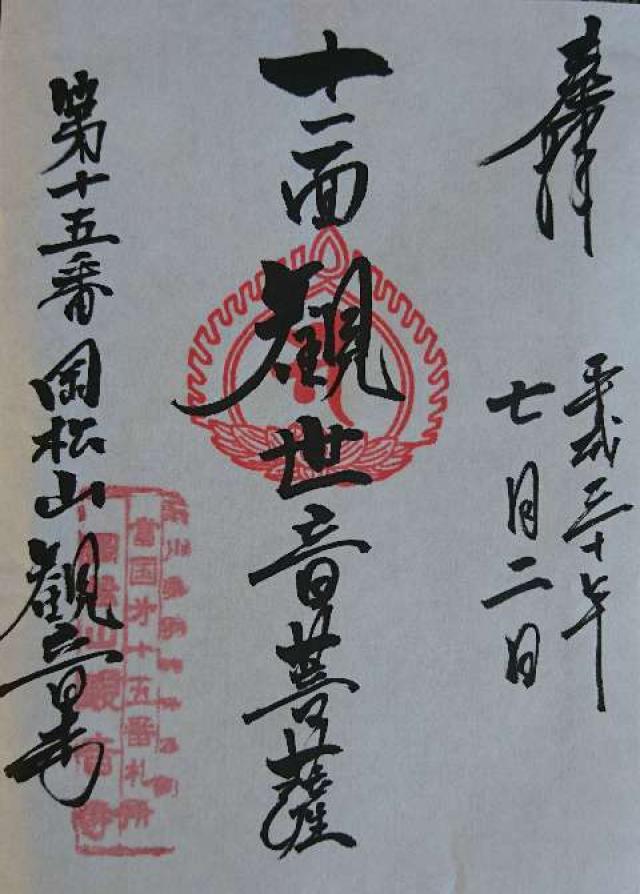 奉拝
平成三十年
七月二日
十一面観世音菩薩
第十五番 岡松山観音寺
當国第十五番札所